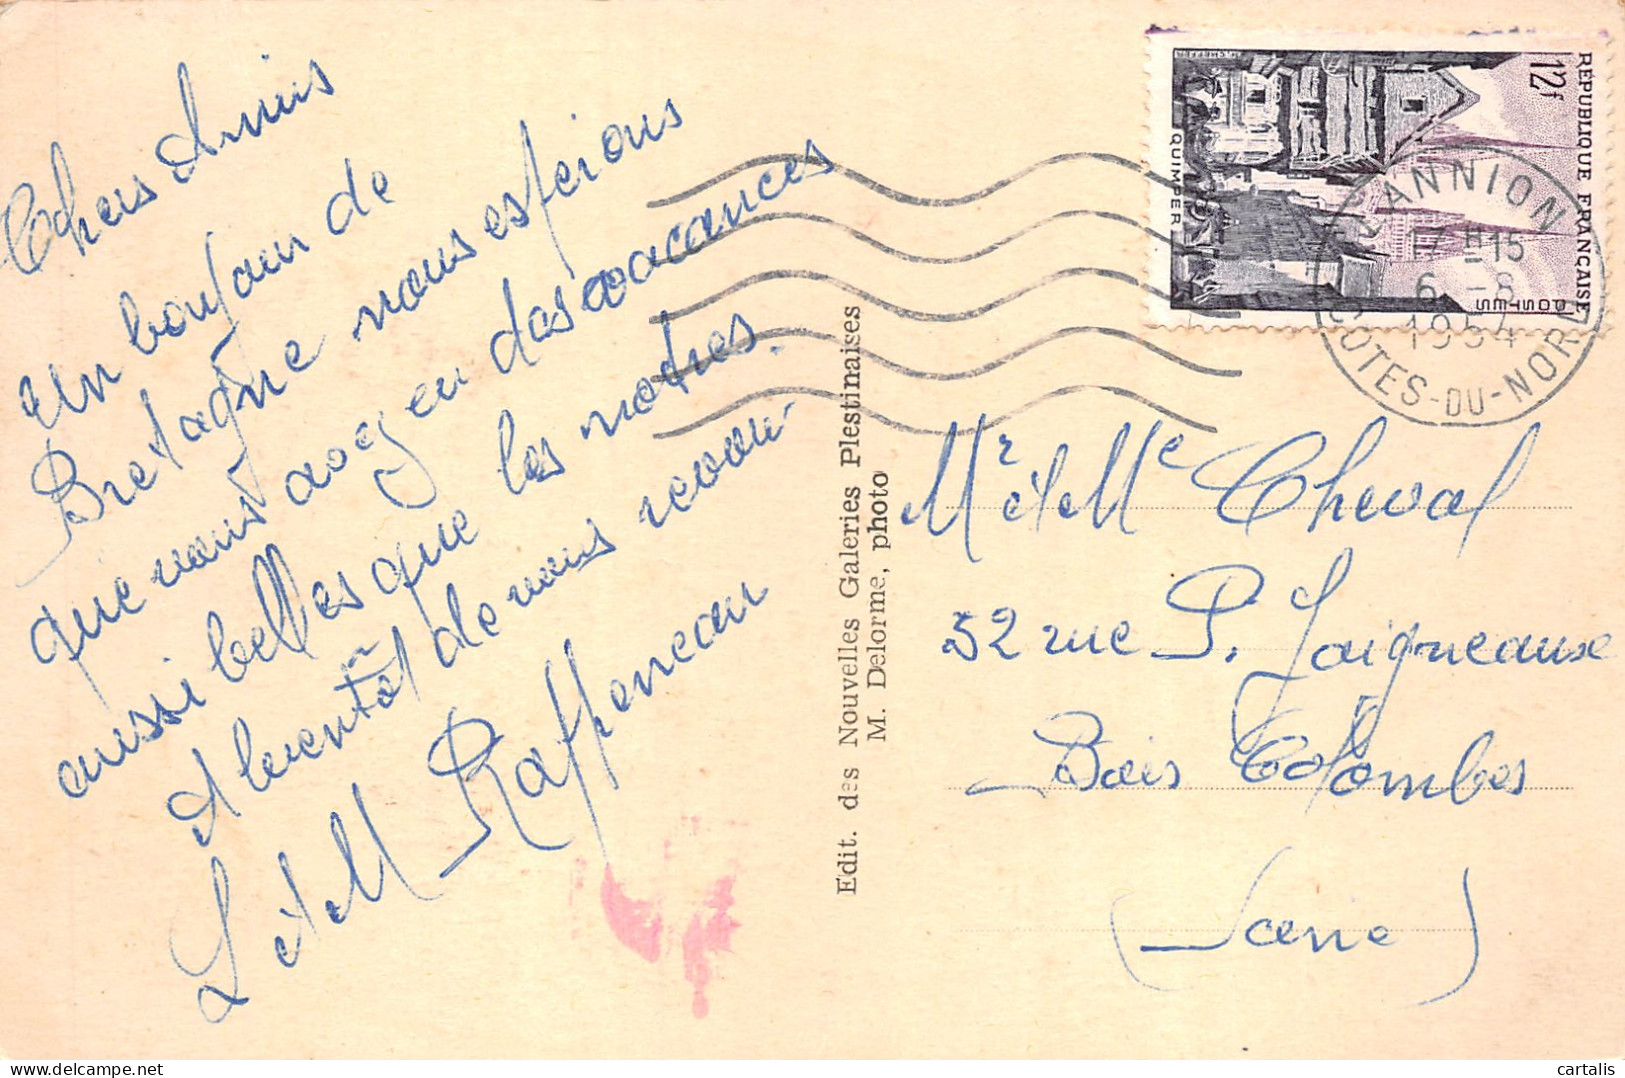 Chers Amis
Un bonjour de
Bretagne nous espérons
que vous avez eu des vacances
aussi belles que les notres.
et bientôt de vous revoir
L et M Raffeneau
Edit. des Nouvelles Galeries Plestinaises
M. Delorme, photo
RÉPUBLIQUE FRANÇAISE
12f
POSTES
QUIMPER
LANNION
17 H 15
6 -8
1954
COTES-DU-NORD
Mr et Me Cheval
52 rue P. Joigneaux
Bois Colombes
(Seine)
cartalis